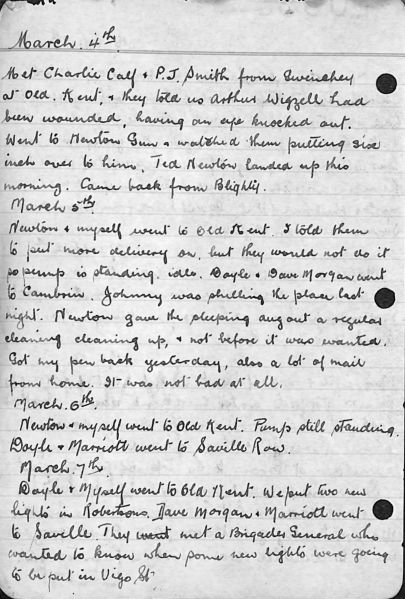 March. 4th.
Met Charlie Calf & P.J. Smith from Quinchey
at Old. Kent. & they told us Arthur Wigzell had
been wounded, having an eye knocked out.
Went to Newton Gun & watched them putting six
inch over to him. Ted Newton landed up this
morning. Came back from Blighty.
March 5th.
Newton & myself went to Old Kent. I told them
to put more delivery on. but they would not do it
so pump is standing. idle. Doyle & Dave Morgan went
to Cambrin. Johnny was shelling the place last
night. Newton gave the sleeping dugout a regular
cleaning cleaning up, & not before it was wanted.
Got my pen back yesterday, also a lot of mail
from home. It was not bad at all.
March. 6th.
Newton & myself went to Old Kent. Pump still standing.
Doyle & Marriott went to Saville Row.
March. 7th.
Doyle & Myself went to Old Kent. We put two new
lights in Robertsons. Dave Morgan & Marriott went
to Saville. They went met a Brigadier General who
wanted to know when some new lights were going
to be put in Vigo. St